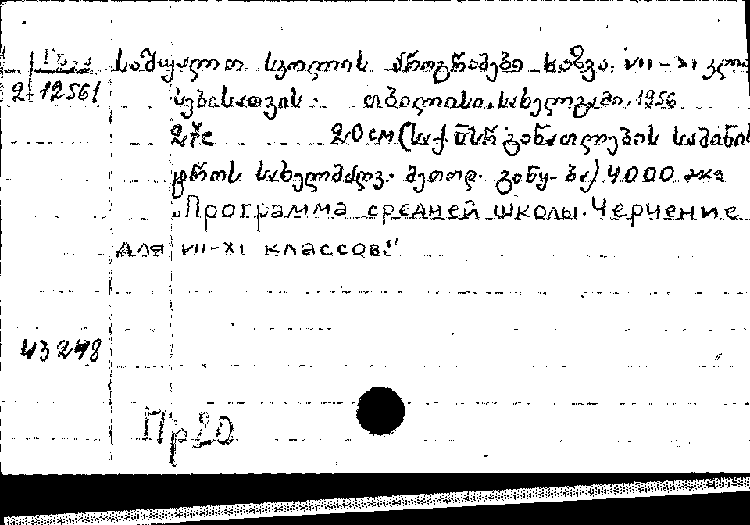 საშუალო სკოლის პროგრამები ხაზვა. VII-XI კლა
2 12561 სებისათვის. თბილისი. სახელგამი. 1956
27c 20 см (საქ სსრ განათლების სამინის
ტროს სასწ. მეთოდ. განყ-ბა) 4000 экз
„Программа средней школы. Черчение
для VII-XI классов."
43248
Пр 20